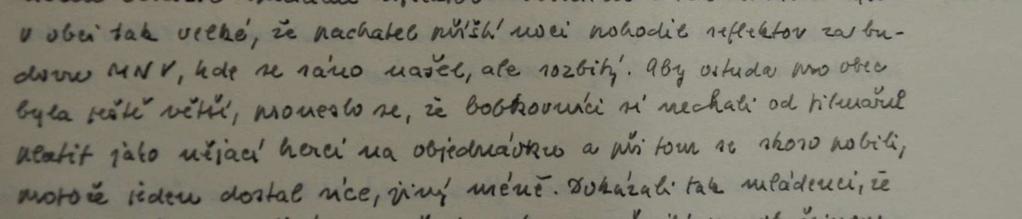 v obci tak velké, že pachatel příští noci pohodil reflektor za bu-
dovu MNV, kde se ráno našel, ale rozbitý. Aby ostuda pro obec
byla ještě větší, proneslo se, že bobkovníci si nechali od filmařů
platit jako nějací herci na objednávku a při tom se skoro pobili,
protože jeden dostal více, jiný méně. Dokázali tak mládenci, že